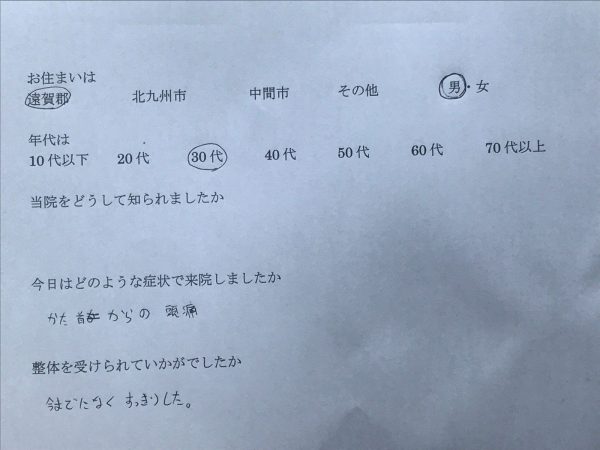 お住まいは
遠賀郡 北九州市 中間市 その他 男・女
年代は
10代以下 20代 30代 40代 50代 60代 70代以上
当院をどうして知られましたか
今日はどのような症状で来院しましたか
かた からの 頭痛
整体を受けられていかがでしたか
今までになく すっきりした。